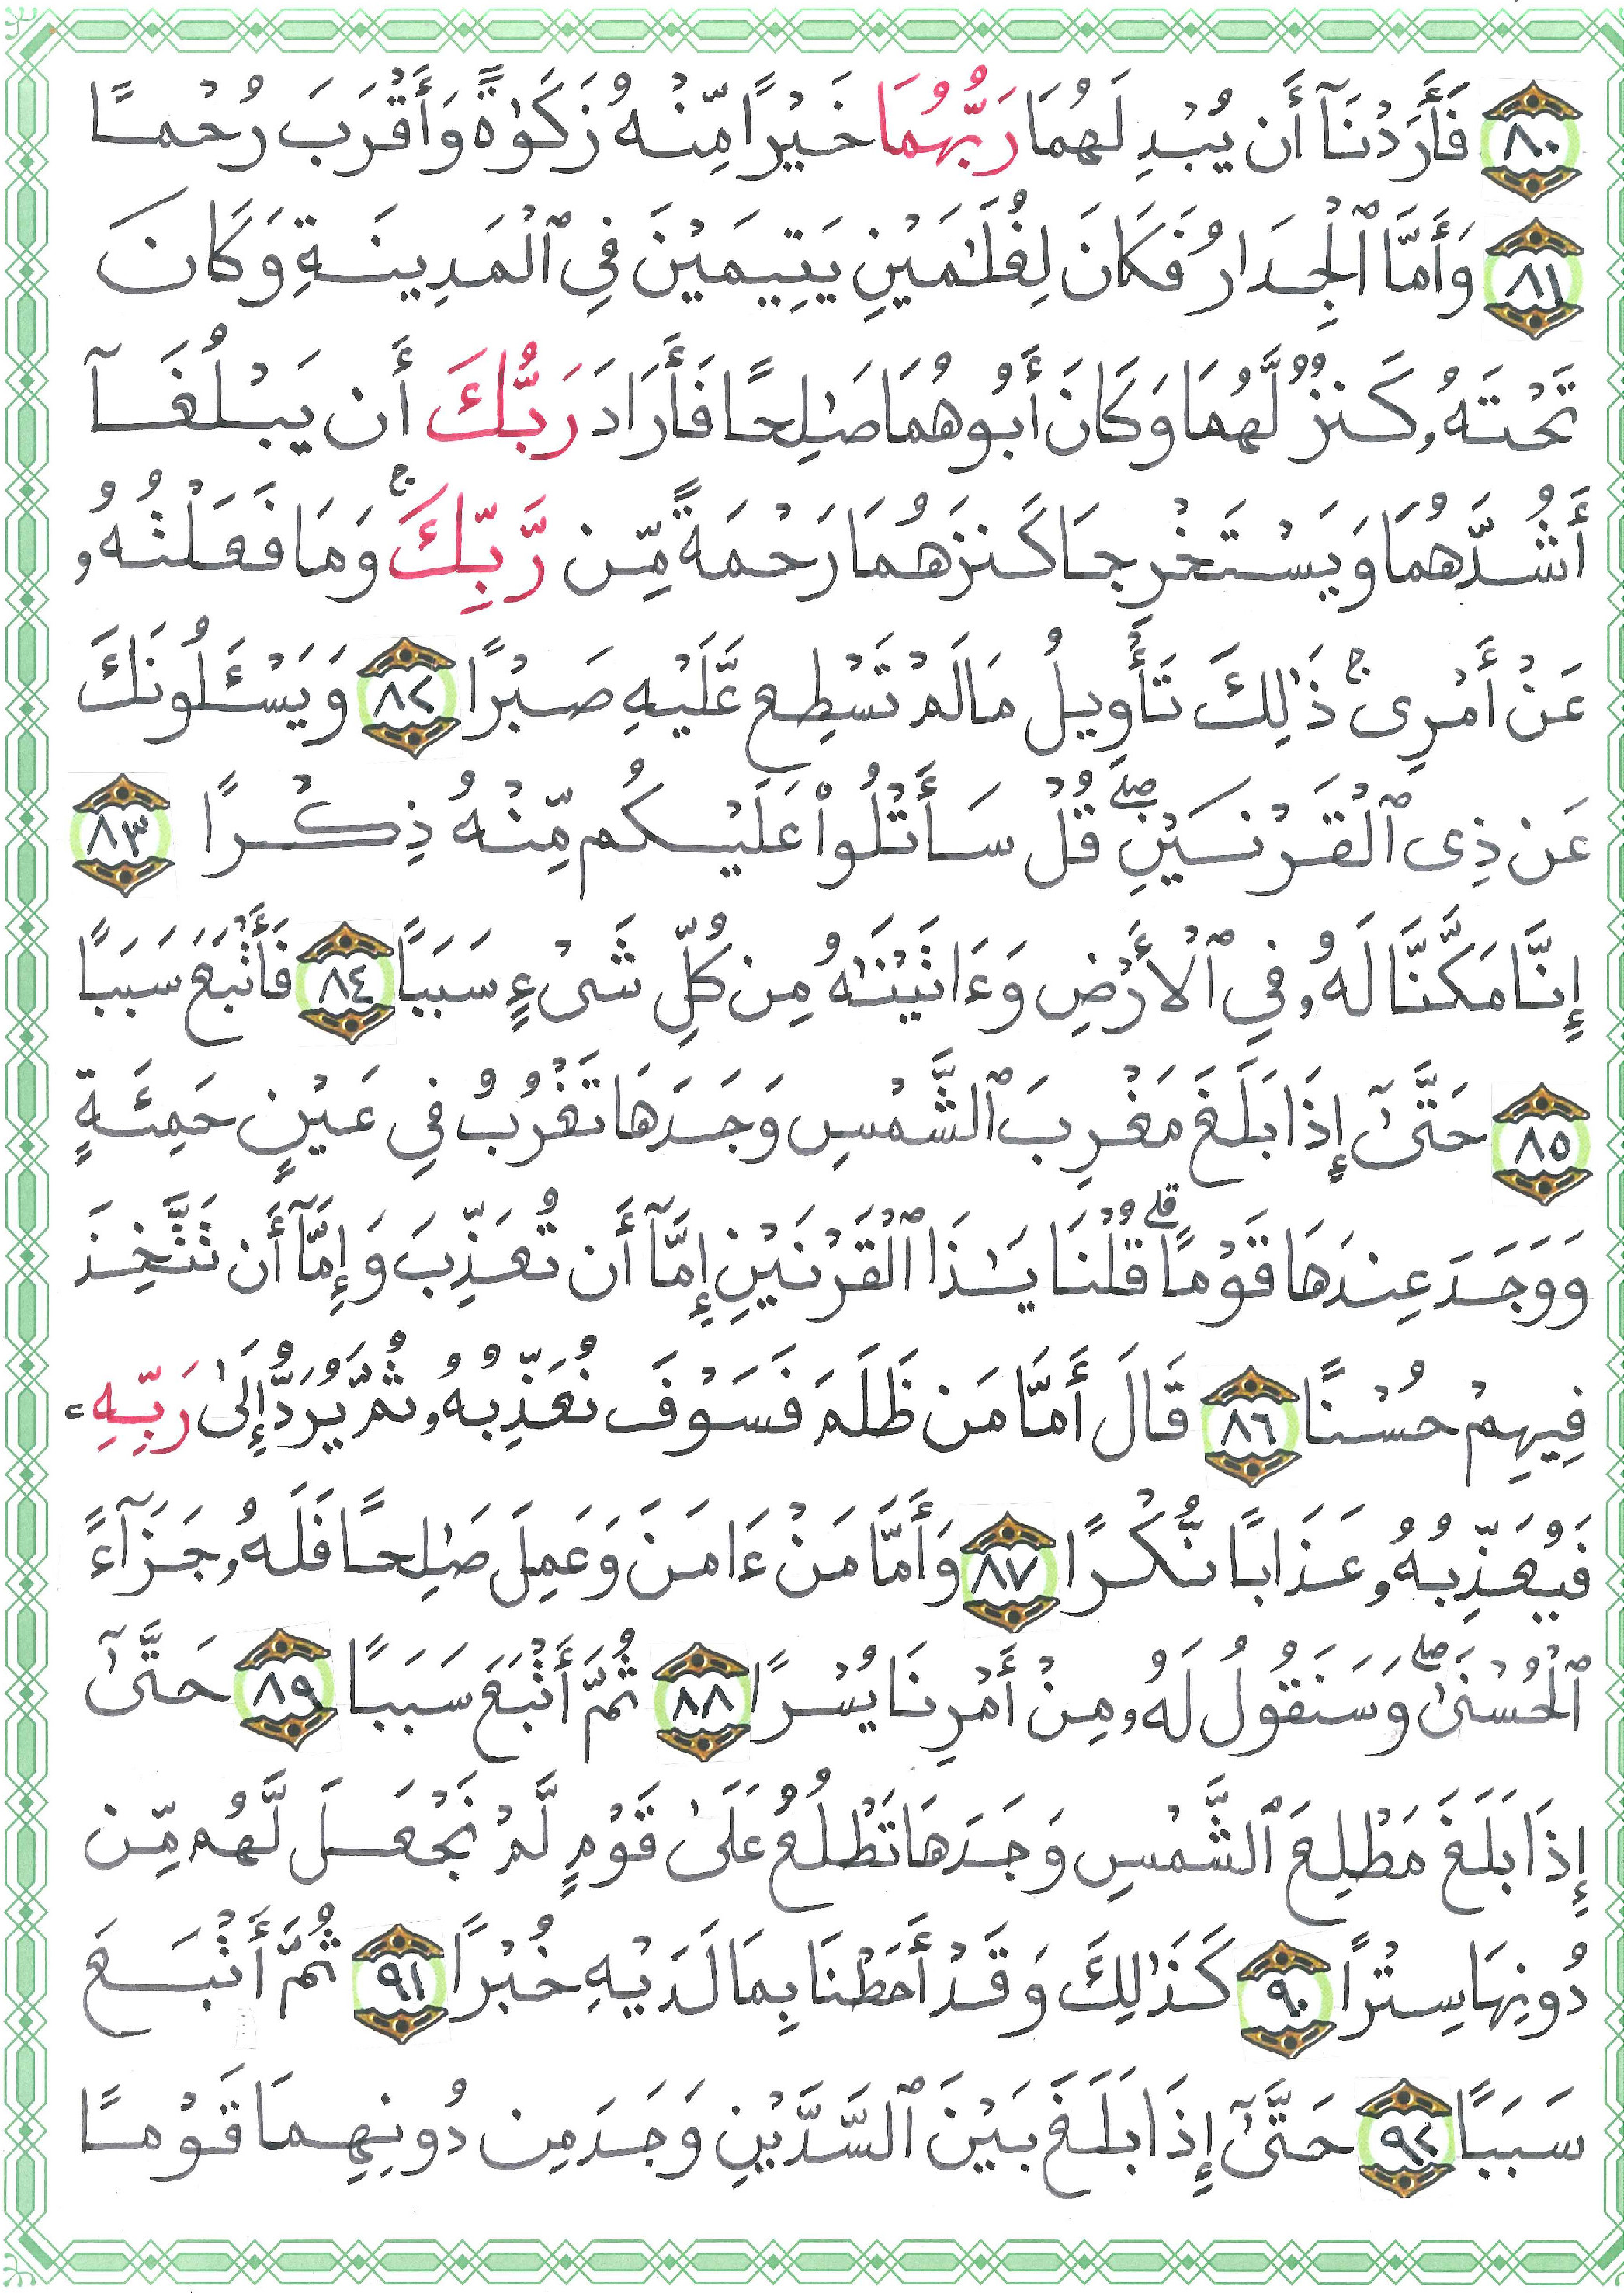 ٨٠ فَأَرَدْنَآ أَن يُبْدِلَهُمَا رَبُّهُمَا خَيْرًا مِّنْهُ زَكَوٰةً وَأَقْرَبَ رُحْمًا
٨١ وَأَمَّا ٱلْجِدَارُ فَكَانَ لِغُلَـٰمَيْنِ يَتِيمَيْنِ فِى ٱلْمَدِينَةِ وَكَانَ
تَحْتَهُۥ كَنزٌ لَّهُمَا وَكَانَ أَبُوهُمَا صَـٰلِحًا فَأَرَادَ رَبُّكَ أَن يَبْلُغَآ
أَشُدَّهُمَا وَيَسْتَخْرِجَا كَنزَهُمَا رَحْمَةً مِّن رَّبِّكَ ۚ وَمَا فَعَلْتُهُۥ
عَنْ أَمْرِى ۚ ذَٰلِكَ تَأْوِيلُ مَا لَمْ تَسْطِع عَّلَيْهِ صَبْرًا ٨٢ وَيَسْـَٔلُونَكَ
عَن ذِى ٱلْقَرْنَيْنِ ۖ قُلْ سَأَتْلُوا۟ عَلَيْكُم مِّنْهُ ذِكْرًا ٨٣
إِنَّا مَكَّنَّا لَهُۥ فِى ٱلْأَرْضِ وَءَاتَيْنَـٰهُ مِن كُلِّ شَىْءٍ سَبَبًا ٨٤ فَأَتْبَعَ سَبَبًا
٨٥ حَتَّىٰٓ إِذَا بَلَغَ مَغْرِبَ ٱلشَّمْسِ وَجَدَهَا تَغْرُبُ فِى عَيْنٍ حَمِئَةٍ
وَوَجَدَ عِندَهَا قَوْمًا ۗ قُلْنَا يَـٰذَا ٱلْقَرْنَيْنِ إِمَّآ أَن تُعَذِّبَ وَإِمَّآ أَن تَتَّخِذَ
فِيهِمْ حُسْنًا ٨٦ قَالَ أَمَّا مَن ظَلَمَ فَسَوْفَ نُعَذِّبُهُۥ ثُمَّ يُرَدُّ إِلَىٰ رَبِّهِۦ
فَيُعَذِّبُهُۥ عَذَابًا نُّكْرًا ٨٧ وَأَمَّا مَنْ ءَامَنَ وَعَمِلَ صَـٰلِحًا فَلَهُۥ جَزَآءً
ٱلْحُسْنَىٰ ۖ وَسَنَقُولُ لَهُۥ مِنْ أَمْرِنَا يُسْرًا ٨٨ ثُمَّ أَتْبَعَ سَبَبًا ٨٩ حَتَّىٰٓ
إِذَا بَلَغَ مَطْلِعَ ٱلشَّمْسِ وَجَدَهَا تَطْلُعُ عَلَىٰ قَوْمٍ لَّمْ نَجْعَل لَّهُم مِّن
دُونِهَا سِتْرًا ٩٠ كَذَٰلِكَ وَقَدْ أَحَطْنَا بِمَا لَدَيْهِ خُبْرًا ٩١ ثُمَّ أَتْبَعَ
سَبَبًا ٩٢ حَتَّىٰٓ إِذَا بَلَغَ بَيْنَ ٱلسَّدَّيْنِ وَجَدَ مِن دُونِهِمَا قَوْمًا